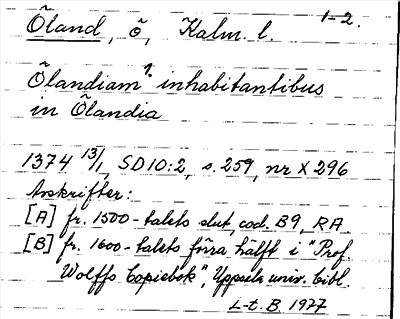 1-2.
Öland, ö, Kalm. l.
Ölandiam? inhabitantibus
in Ölandia
1374 13/1, SD10:2, s. 259, nr X 296
Avskrifter:
[A] fr. 1500-talets slut, cod. B9, RA
[B] fr. 1600-talets förra hälft i "Prof.
Wolffs Copiebok", Uppsala univ. bibl.
L-t. B. 1977